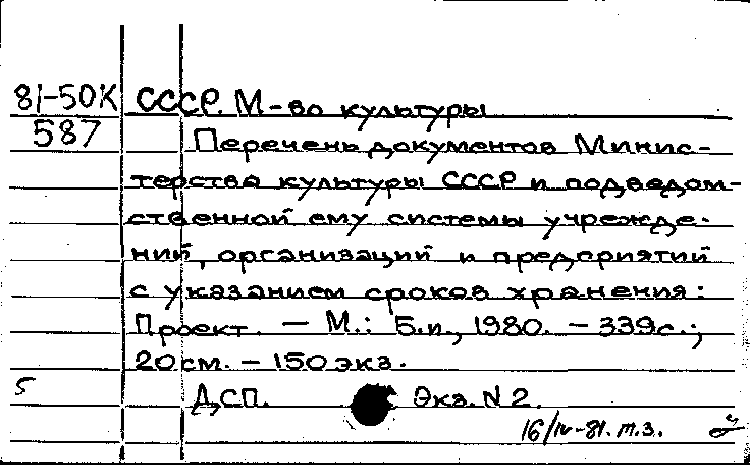 81-50К СССР. М-во культуры
587 Перечень документов Минис-
терства культуры СССР и подведом-
ственной ему системы учрежде-
ний, организаций и предприятий
с указанием сроков хранения:
Проект. — М.: Б.и., 1980. — 339с.;
20см. — 150экз.
5 ДСП. Экз. N 2.
16/IV-81. т.з.